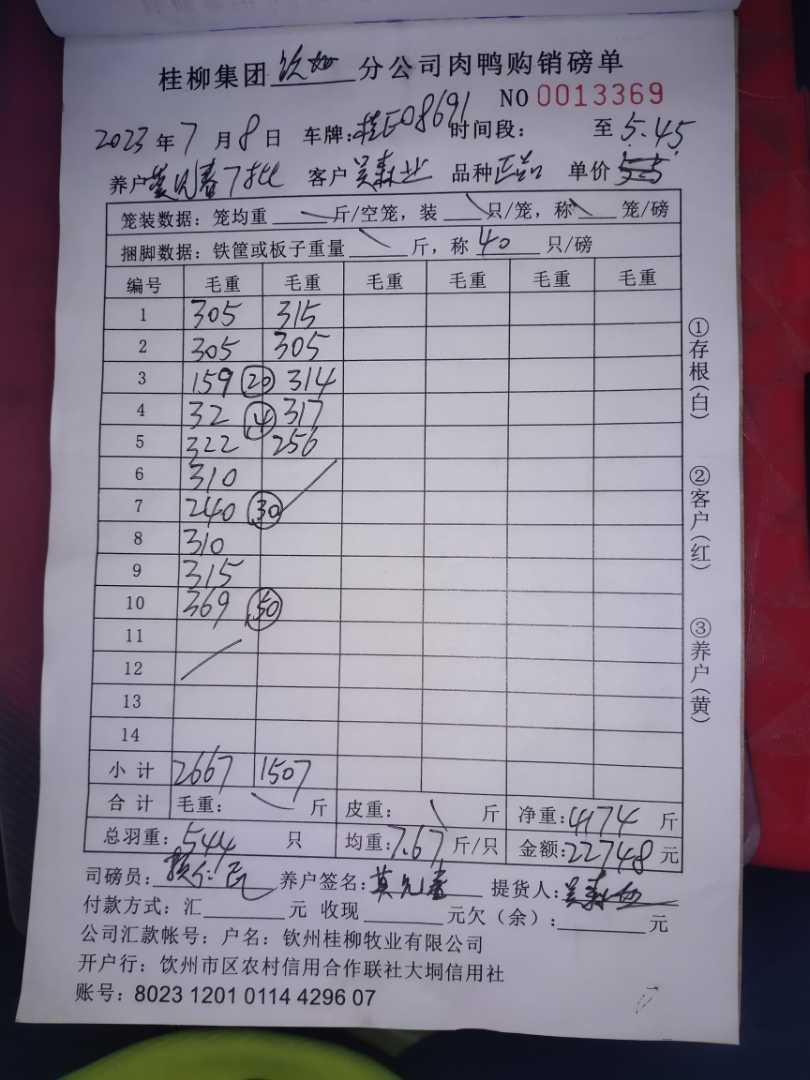 桂柳集团 钦州 分公司肉鸭购销磅单
NO 0013369
2023 年 7 月 8 日 车牌: 桂E08691 时间段: 至 5.45
养户 莫兄春7批 客户 吴森业 品种 正品 单价
笼装数据: 笼均重 斤/空笼, 装 只/笼, 称 笼/磅
捆脚数据: 铁筐或板子重量 斤, 称 40 只/磅
编号 毛重 毛重 毛重 毛重 毛重 毛重
1 305 315
2 305 305
3 159 20 314
4 32 4 317
5 322 256
6 310
7 240 30
8 310
9 315
10 369 50
11
12
13
14
小计 2667 1507
合计 毛重: 斤 皮重: 斤 净重: 4174 斤
总羽重: 544 只 均重: 7.67 斤/只 金额: 22748 元
司磅员: 养户签名: 莫兄春 提货人: 吴森业
付款方式: 汇 元 收现 元欠(余): 元
公司汇款帐号: 户名: 钦州桂柳牧业有限公司
开户行: 钦州市区农村信用合作联社大垌信用社
账号: 8023 1201 0114 4296 07
①存根(白)
②客户(红)
③养户(黄)